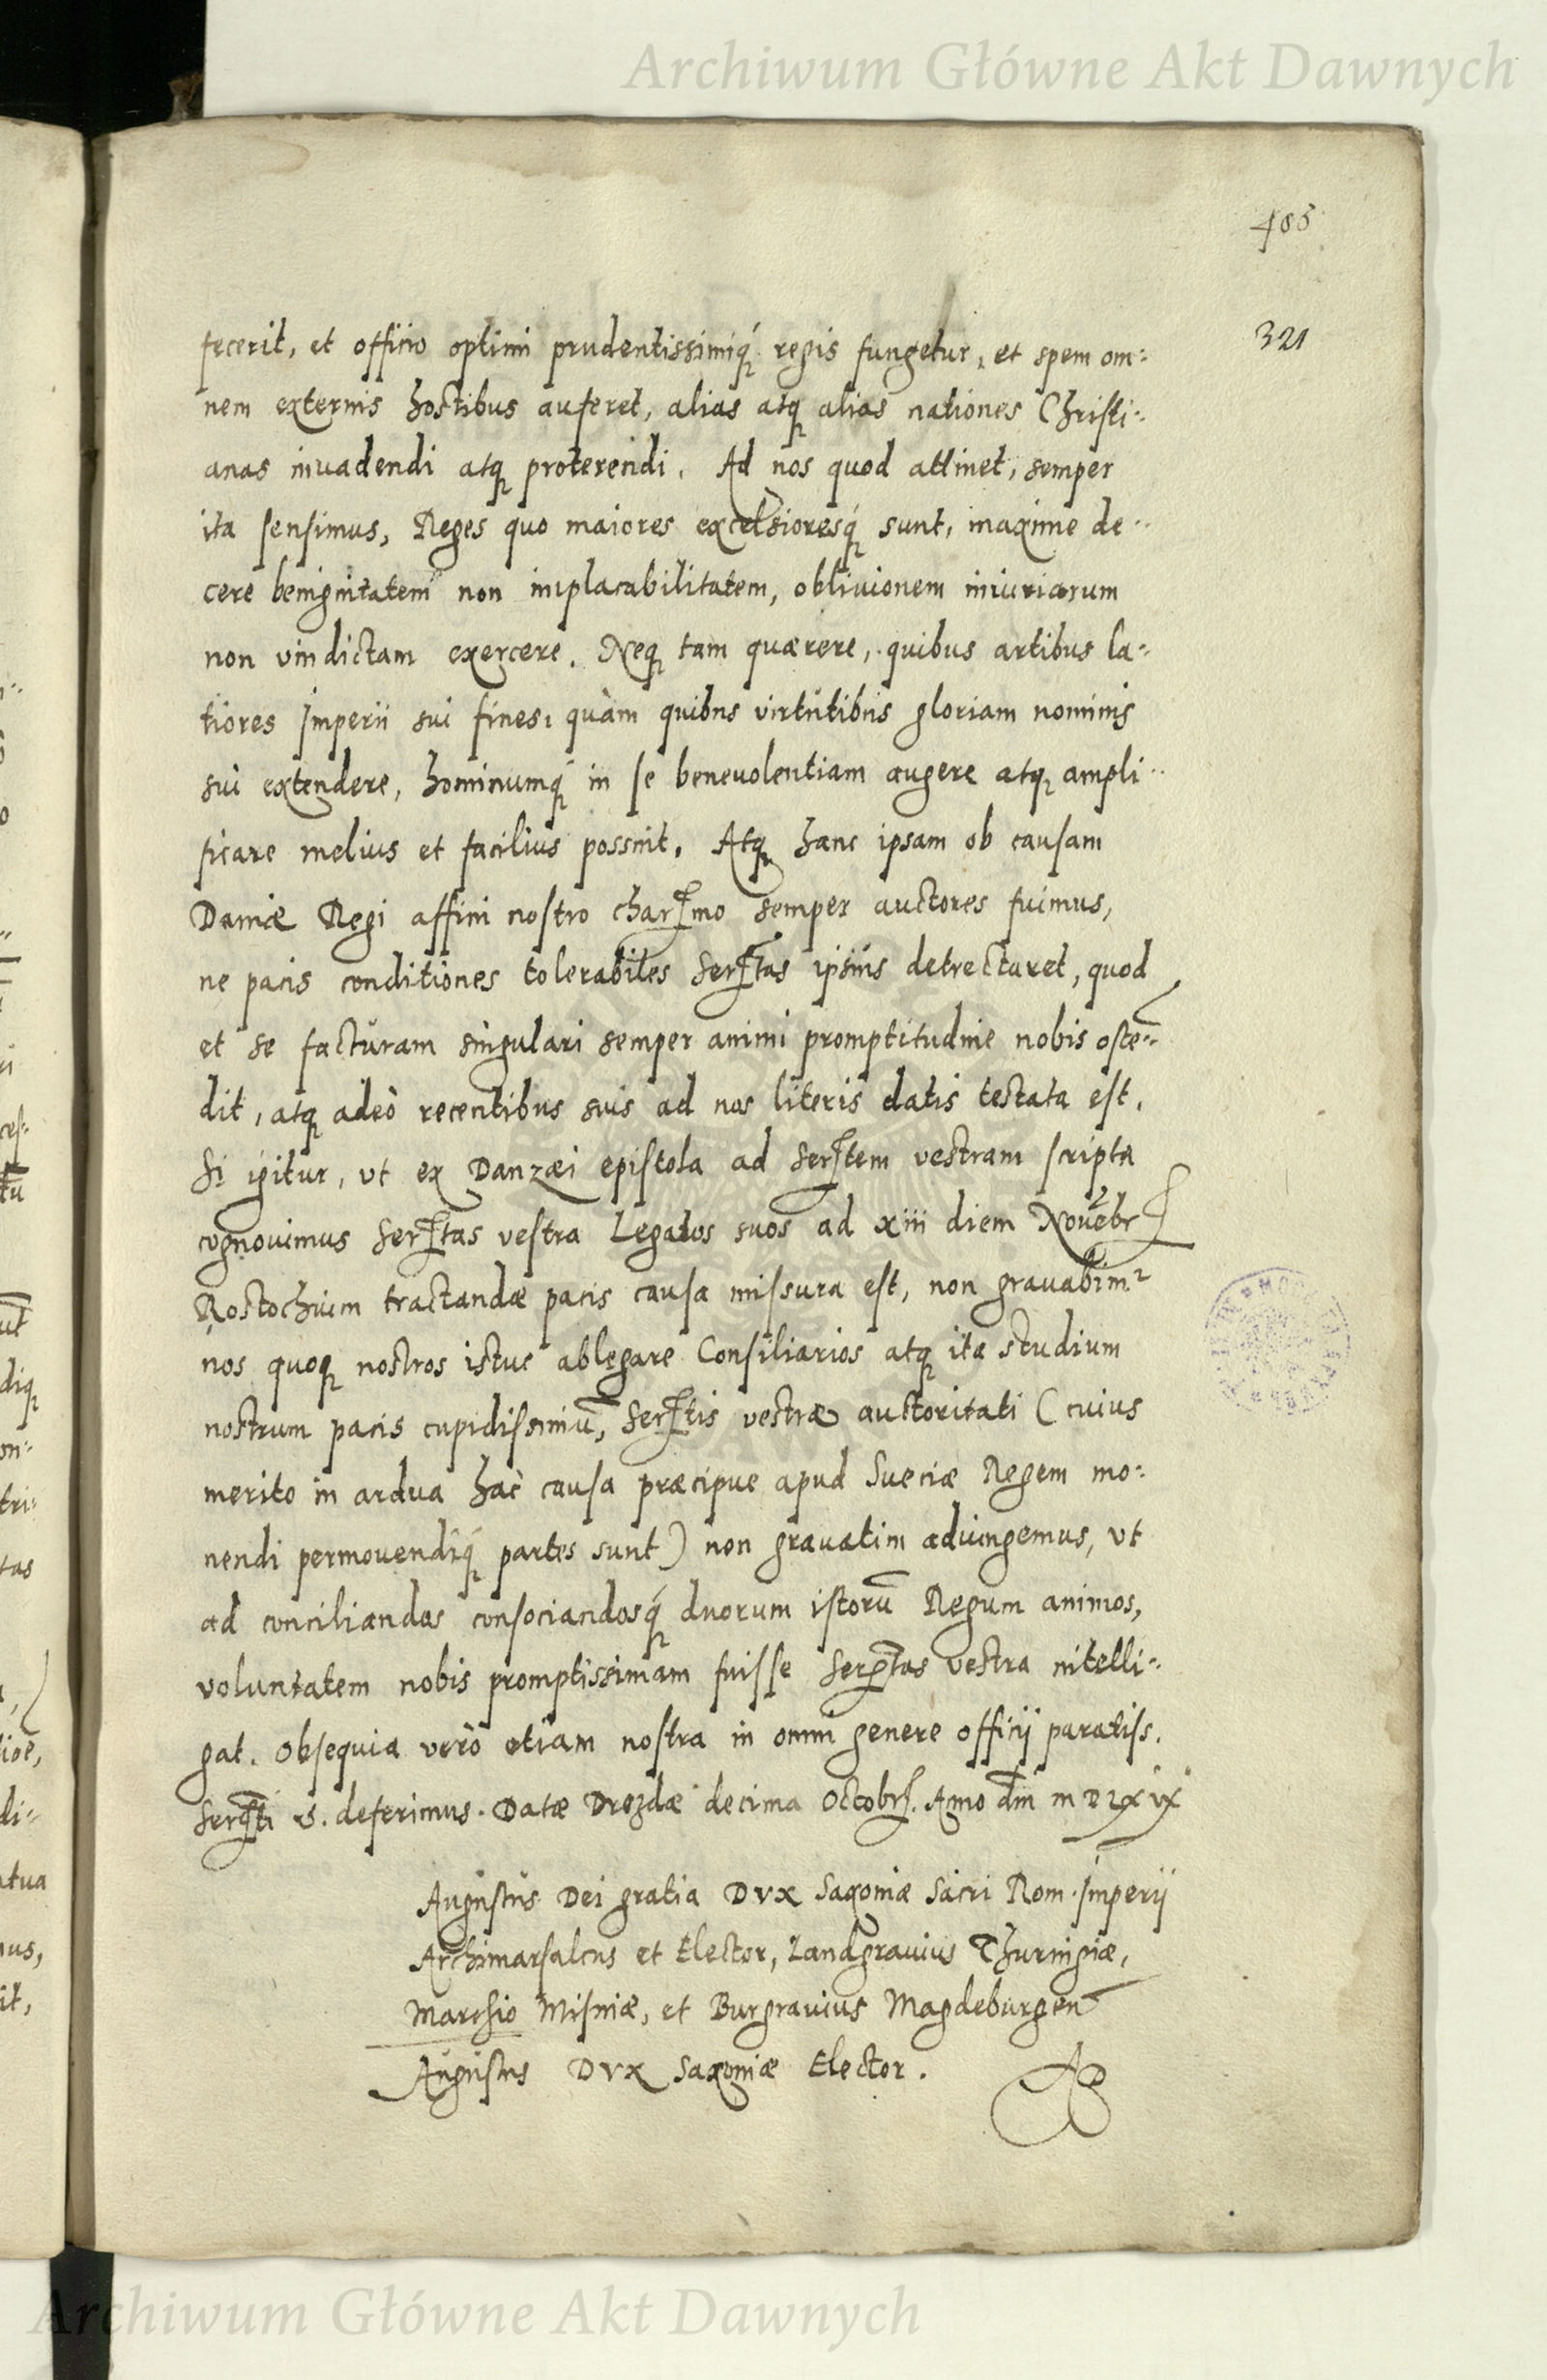 Archiwum Główne Akt Dawnych
405
321
fecerit, et officio optimi prudentissimiq́ꝫ regis fungetur, et spem om:
nem externis hostibus auferet, alias atqꝫ alias nationes Christi:
anas inuadendi atqꝫ proterendi. Ad nos quod attinet, semper
ita sensimus, Reges quo maiores excelsioresq́ꝫ sunt, maxime de:
cere benignitatem non implacabilitatem, obliuionem iniuriarum
non vindictam exercere. Neqꝫ tam quærere, quibus artibus la:
tiores Imperii sui fines, quàm quibus virtutibus gloriam nominis
sui extendere, hominumq́ꝫ in se beneuolentiam augere atqꝫ ampli:
ficare melius et facilius possint. Atqꝫ hanc ipsam ob causam
Daniæ Regi affini nostro charſmo semper auctores fuimus,
ne pacis conditiones tolerabiles Serſtas ipsius detrectaret, quod
et se facturam singulari semper animi promptitudine nobis ostē:
dit, atqꝫ adeò recentibus suis ad nos literis datis testata est.
Si igitur, vt ex Danzæi epistola ad Serſtem vestram scripta
cognouimus Serſtas vestra Legatos suos ad xiii diem Nouēbr
Rostochium tractandæ pacis causa missura est, non grauabim⁹
nos quoqꝫ nostros istuc ablegare Consiliarios atqꝫ ita studium
nostrum pacis cupidissimū, Serſtis vestræ auctoritati (cuius
merito in ardua hac causa præcipue apud Sueciæ Regem mo:
nendi permouendiq́ꝫ partes sunt) non grauatim adiungemus, vt
ad conciliandos consociandosq́ꝫ duorum istorū Regum animos,
voluntatem nobis promptissimam fuisse Serſtas vestra intelli:
gat. Obsequia verò etiam nostra in omni genere officij paratiss.
Serſti v. deferimus. Datæ Drezdæ decima Octobr. Anno dm̄ MDLXIX
Augustus Dei gratia Dvx Saxoniæ Sacri Rom. Imperij
Archimarsalcus et Elector, Landgrauius Thuringiæ,
Marchio Misniæ, et Burgrauius Magdeburgen
Augustus Dvx Saxoniæ Elector.
Archiwum Główne Akt Dawnych